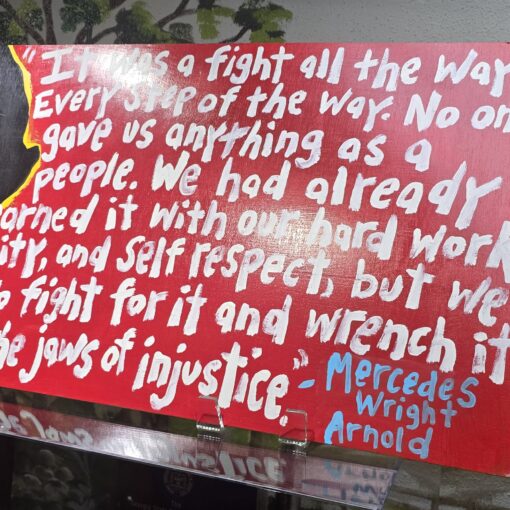 "It was a fight all the way
Every step of the way. No on
gave us anything as a
people. We had already
arned it with our hard work
ity, and self respect, but we
o fight for it and wrench it
he jaws of injustice."
- Mercedes
Wright
Arnold